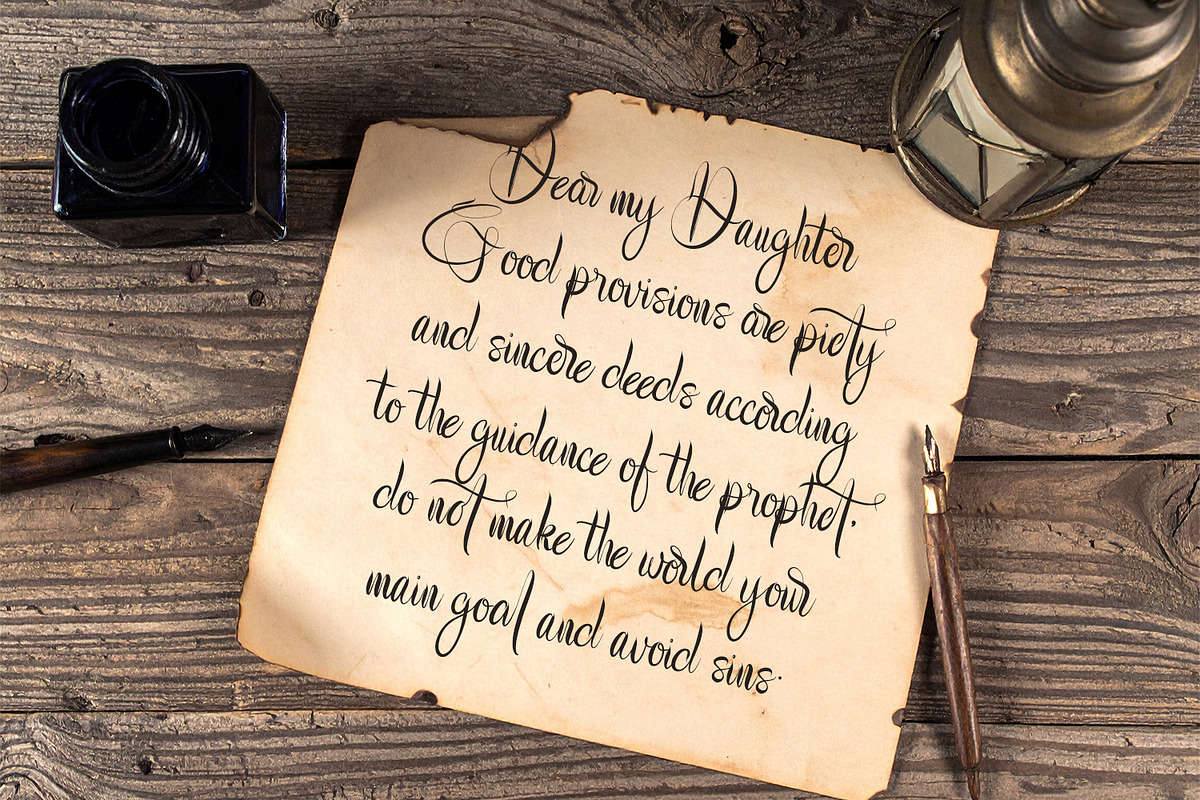 Dear my Daughter
Good provisions are piety
and sincere deeds according
to the guidance of the prophet.
do not make the world your
main goal and avoid sins.